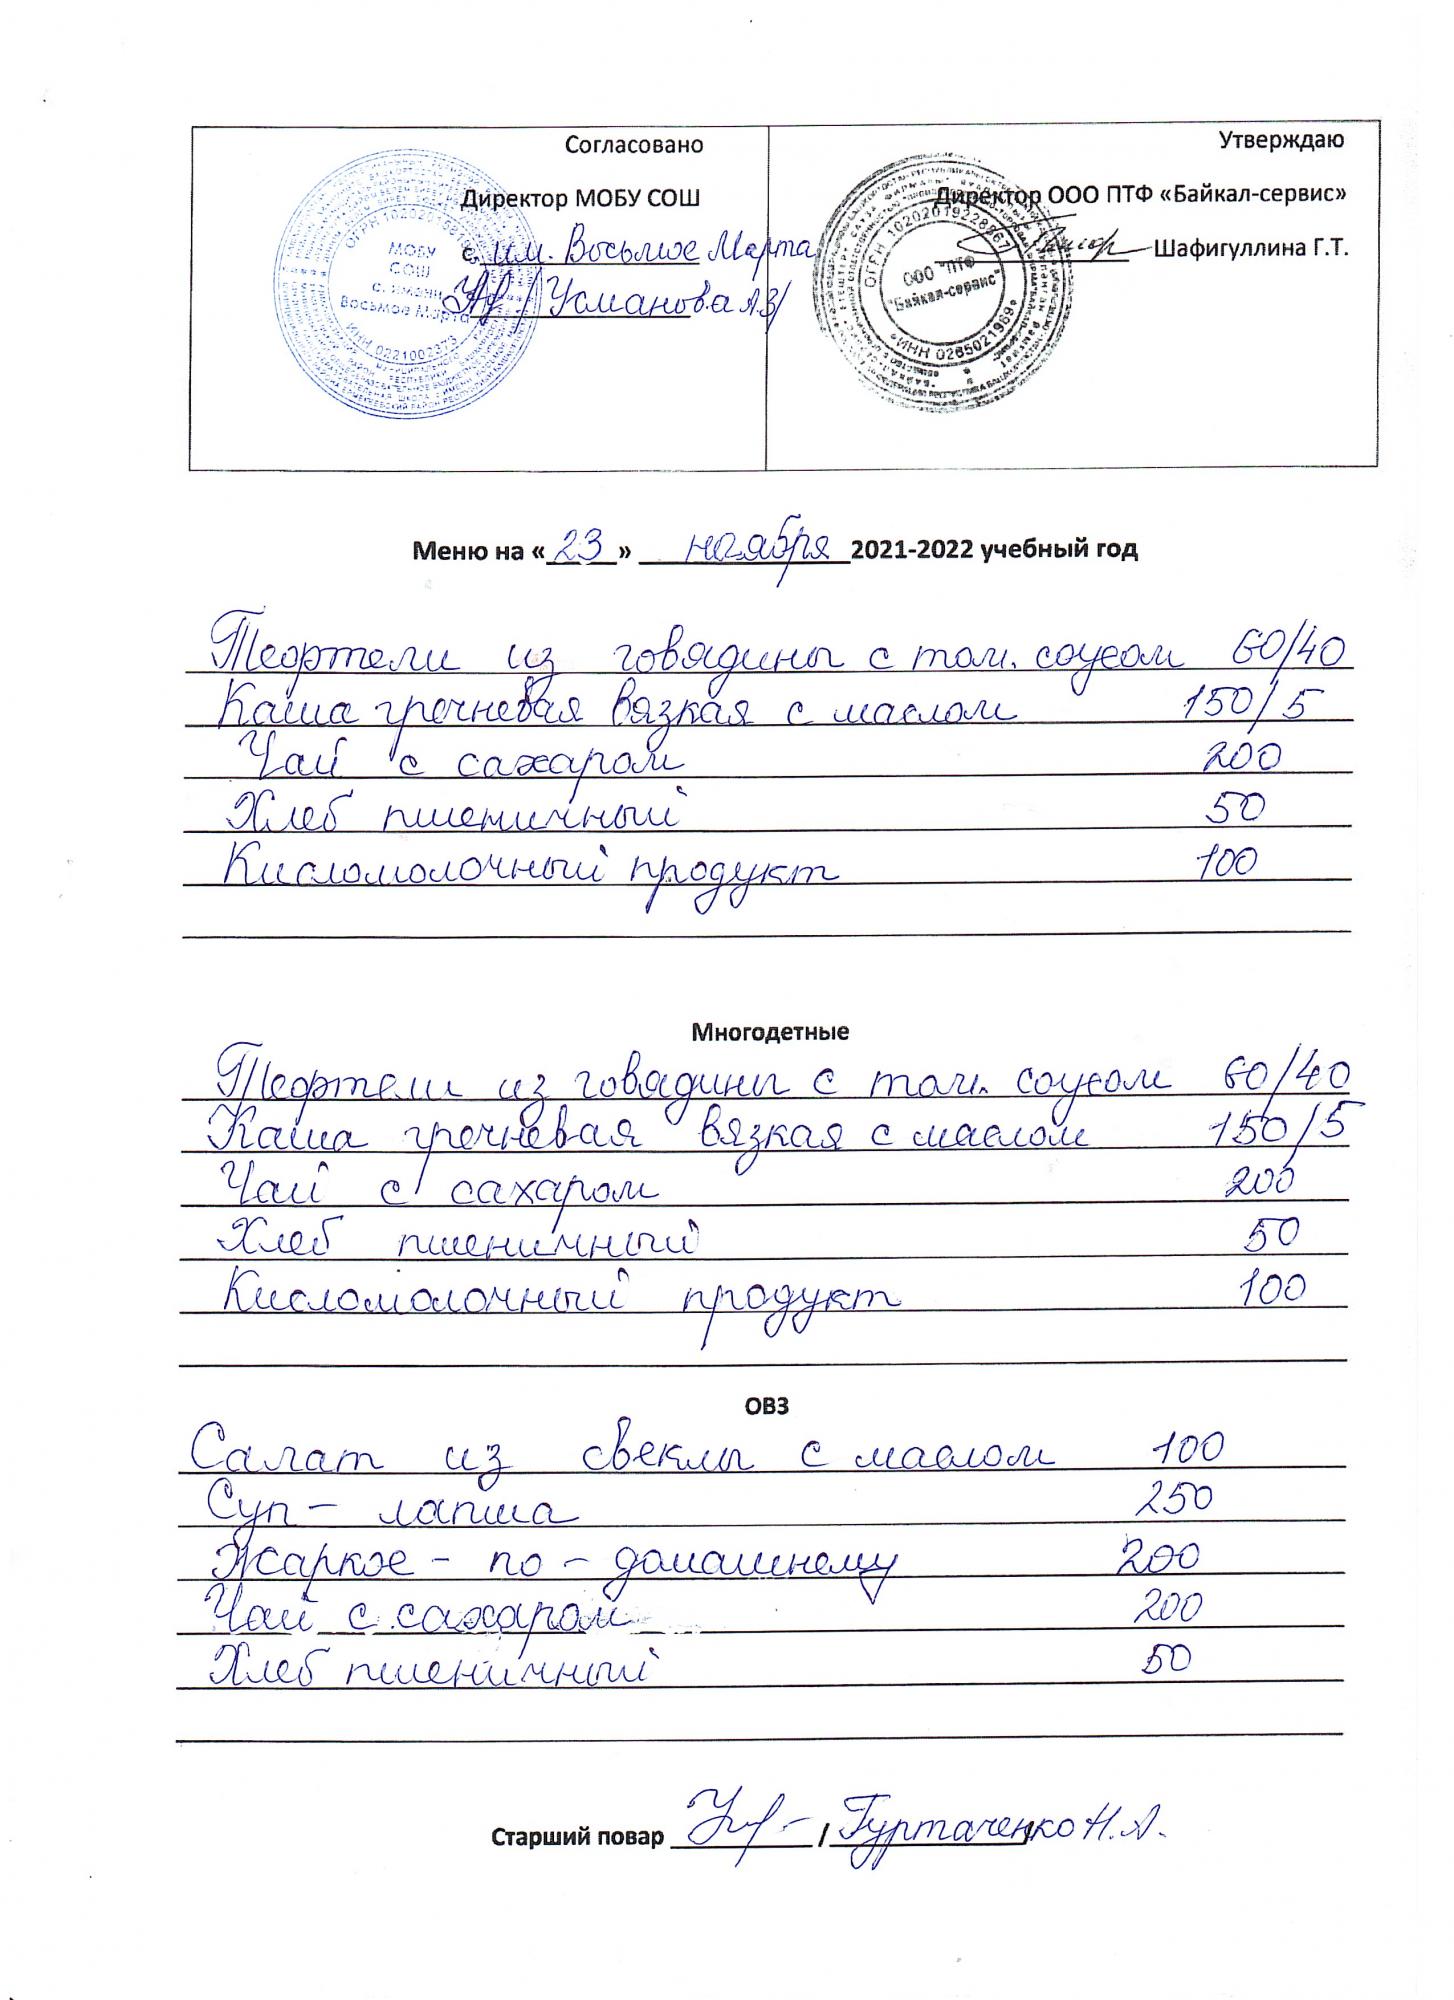 Согласовано
Директор МОБУ СОШ
с. им. Восьмое Марта
/ Усманова А.З/
ОГРН
МОБУ
СОШ
с. имени
Восьмое Марта
ИНН 0221002373
Утверждаю
Директор ООО ПТФ «Байкал-сервис»
Шафигуллина Г.Т.
ОГРН 1020201922896
ООО "ПТФ
"Байкал-сервис"
ИНН 0265021969
Меню на « 23 » ноября 2021-2022 учебный год
Тефтели из говядины с том. соусом 60/40
Каша гречневая вязкая с маслом 150/5
Чай с сахаром 200
Хлеб пшеничный 50
Кисломолочный продукт 100
Многодетные
Тефтели из говядины с том. соусом 60/40
Каша гречневая вязкая с маслом 150/5
Чай с сахаром 200
Хлеб пшеничный 50
Кисломолочный продукт 100
ОВЗ
Салат из свеклы с маслом 100
Суп - лапша 250
Жаркое - по - домашнему 200
Чай с сахаром 200
Хлеб пшеничный 50
Старший повар / Гуртаченко Н.А. /